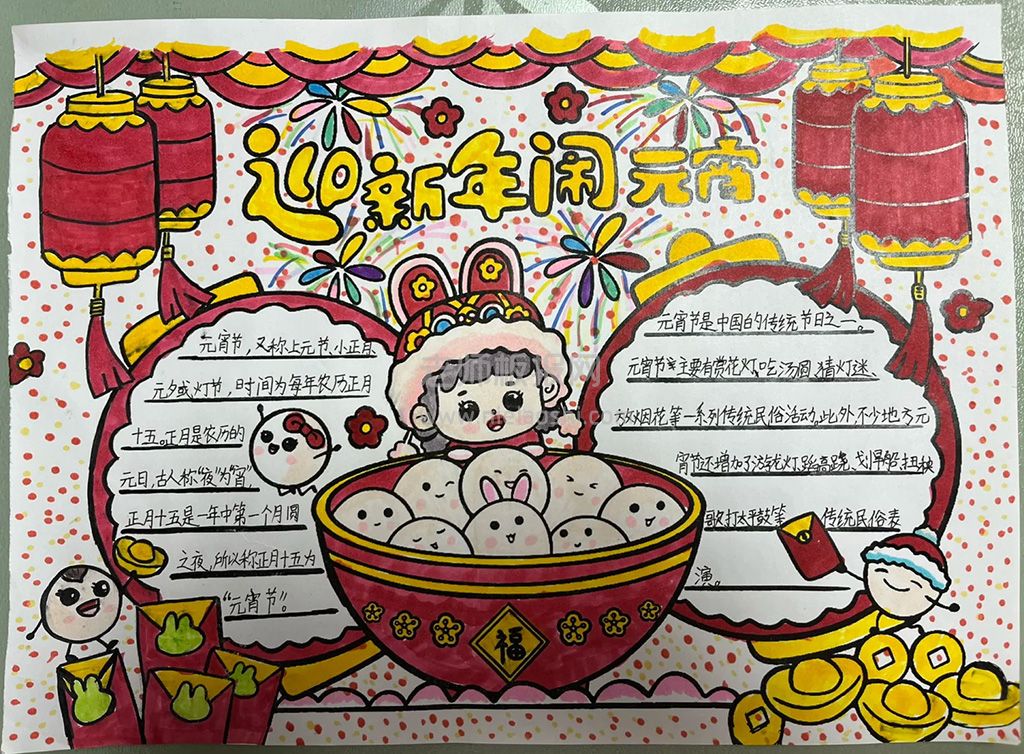 迎新年闹元宵
元宵节，又称上元节、小正月
元夕或灯节，时间为每年农历正月
十五。正月是农历的
元日，古人称"夜"为"宵"
正月十五是一年中第一个月圆
之夜，所以称正月十五为
"元宵节"。
元宵节是中国的传统节日之一。
元宵节主要有赏花灯、吃汤圆、猜灯谜、
放烟花等一系列传统民俗活动，此外不少地方元
宵节还增加了游龙灯、踩高跷、划旱船、扭秧
歌打太平鼓等传统民俗表
演。
福